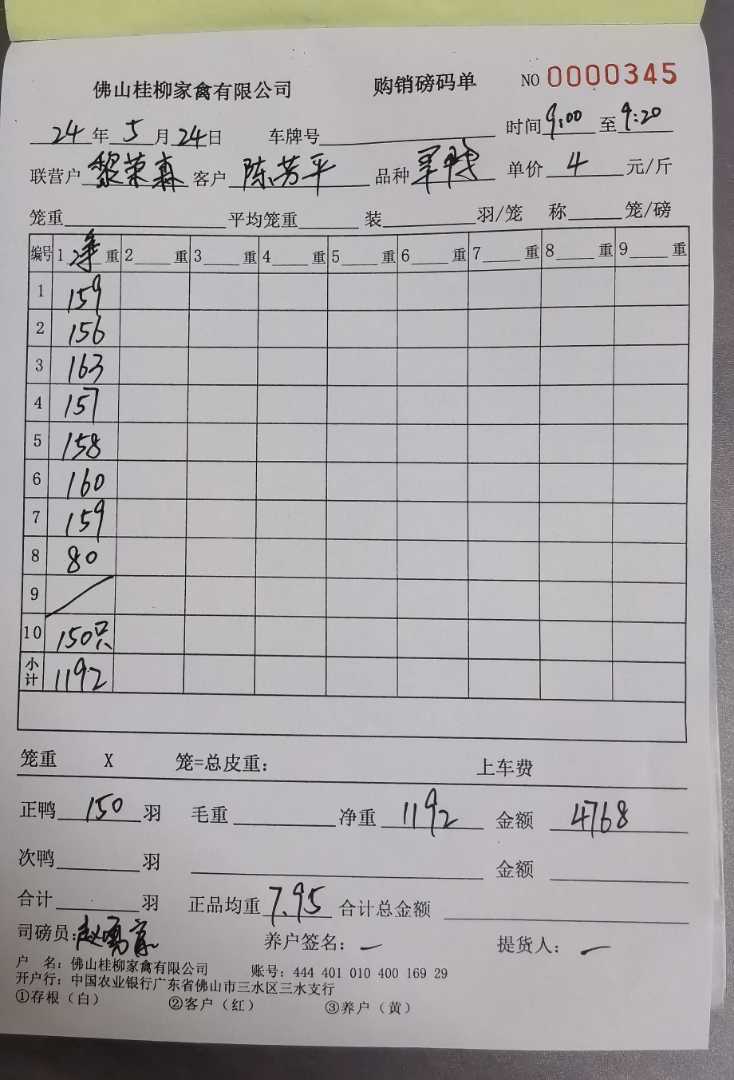 佛山桂柳家禽有限公司 购销磅码单 NO 0000345
24年5月24日 车牌号 时间9:00至9:20
联营户黎荣森 客户陈芳平 品种 单价4元/斤
笼重 平均笼重 装 羽/笼 称 笼/磅
编号 1净重 2重 3重 4重 5重 6重 7重 8重 9重
1 159
2 156
3 163
4 157
5 158
6 160
7 159
8 80
9 /
10 150只
小计 1192
笼重 X 笼=总皮重: 上车费
正鸭150羽 毛重 净重1192 金额4768
次鸭 羽 金额
合计 羽 正品均重7.95 合计总金额
司磅员: 养户签名:— 提货人:—
户 名: 佛山桂柳家禽有限公司 账号: 444 401 010 400 169 29
开户行: 中国农业银行广东省佛山市三水区三水支行
①存根(白) ②客户(红) ③养户(黄)